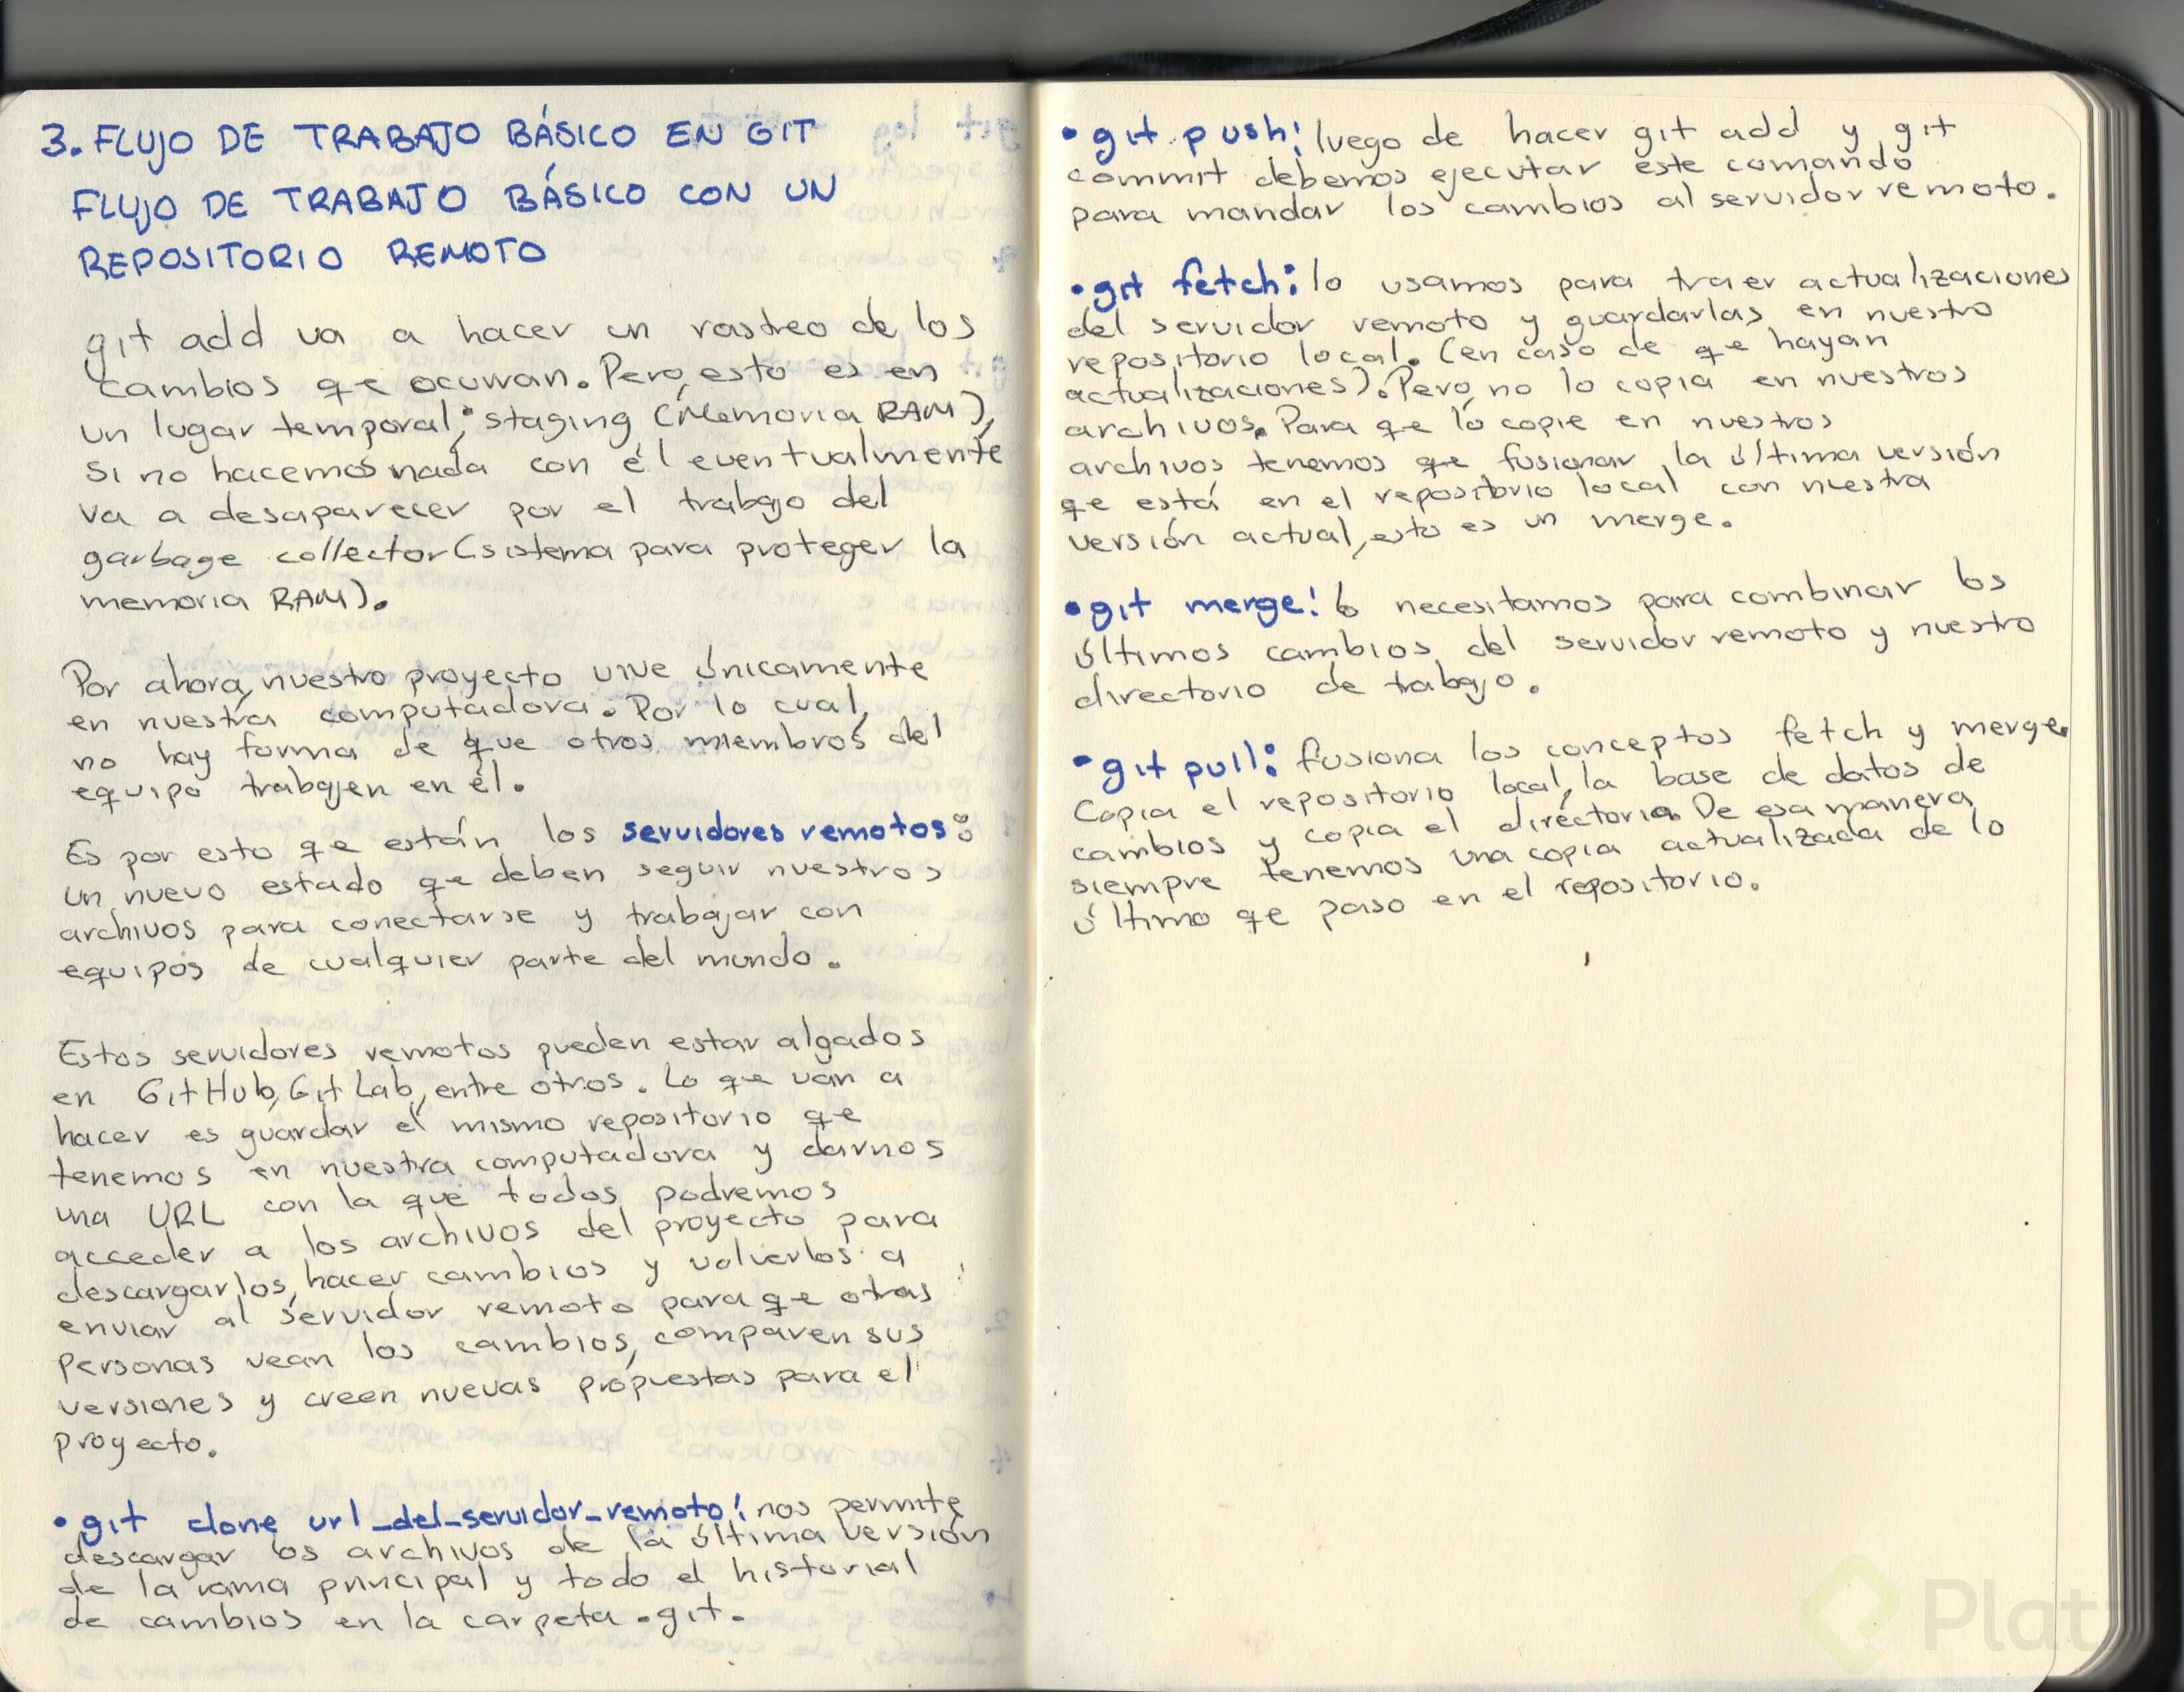 3. FLUJO DE TRABAJO BÁSICO EN GIT
FLUJO DE TRABAJO BÁSICO CON UN
REPOSITORIO REMOTO
git add va a hacer un rastreo de los
cambios qe ocurran. Pero, esto es en
un lugar temporal: staging (Memoria RAM),
si no hacemos nada con él eventualmente
va a desaparecer por el trabajo del
garbage collector (sistema para proteger la
memoria RAM).
Por ahora, nuestro proyecto vive únicamente
en nuestra computadora. Por lo cual,
no hay forma de que otros miembros del
equipo trabajen en él.
Es por esto qe están los servidores remotos:
un nuevo estado qe deben seguir nuestros
archivos para conectarse y trabajar con
equipos de cualquier parte del mundo.
Estos servidores remotos pueden estar algados
en GitHub, GitLab, entre otros. Lo qe van a
hacer es guardar el mismo repositorio qe
tenemos en nuestra computadora y darnos
una URL con la que todos podremos
acceder a los archivos del proyecto para
descargarlos, hacer cambios y volverlos a
enviar al servidor remoto para qe otras
personas vean los cambios, comparen sus
versiones y creen nuevas propuestas para el
proyecto.
• git clone url_del_servidor_remoto: nos permite
descargar los archivos de la última versión
de la rama principal y todo el historial
de cambios en la carpeta .git.
• git push: luego de hacer git add y git
commit debemos ejecutar este comando
para mandar los cambios al servidor remoto.
• git fetch: lo usamos para traer actualizaciones
del servidor remoto y guardarlas en nuestro
repositorio local. (en caso de qe hayan
actualizaciones). Pero, no lo copia en nuestros
archivos. Para qe lo copie en nuestros
archivos tenemos qe fusionar la última versión
qe está en el repositorio local con nuestra
versión actual, esto es un merge.
• git merge: lo necesitamos para combinar los
últimos cambios del servidor remoto y nuestro
directorio de trabajo.
• git pull: fusiona los conceptos fetch y merge.
Copia el repositorio local, la base de datos de
cambios y copia el directorio. De esa manera,
siempre tenemos una copia actualizada de lo
último qe paso en el repositorio.
Plat